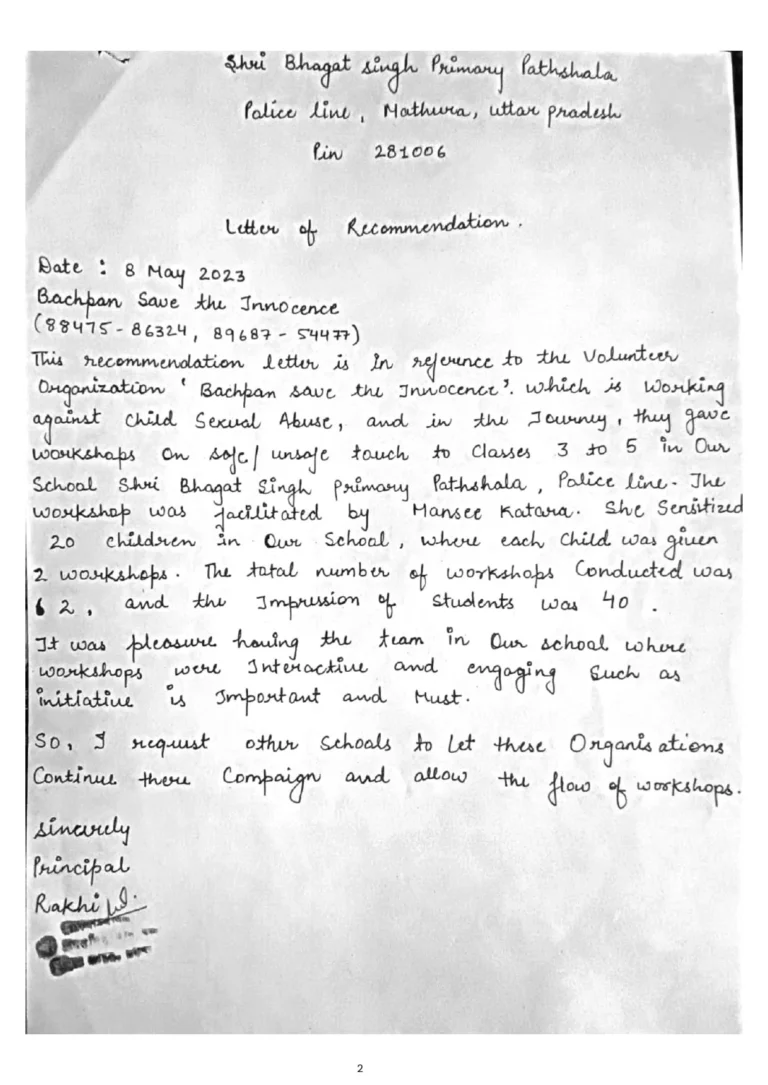 Shri Bhagat singh Primary Pathshala
Police line, Mathura, uttar pradesh
Pin 281006
Letter of Recommendation.
Date : 8 May 2023
Bachpan Save the Innocence
(88475-86324, 89687-54477)
This recommendation letter is in reference to the Volunteer
Organization ' Bachpan save the Innocence'. which is Working
against Child Sexual Abuse, and in the Journey, they gave
workshops on safe/unsafe touch to Classes 3 to 5 in Our
School Shri Bhagat Singh primary Pathshala, Police line. The
workshop was facilitated by Mansee Katara. She Sensitized
20 children in Our School, where each Child was given
2 workshops. The total number of workshops Conducted was
2, and the Impression of Students was 40.
It was pleasure having the team in Our school where
workshops were Interactive and engaging Such as
initiative is Important and Must.
So, I request other Schools to Let these Organisations
Continue there Compaign and allow the flow of workshops.
sincerely
Principal
Rakhi
2